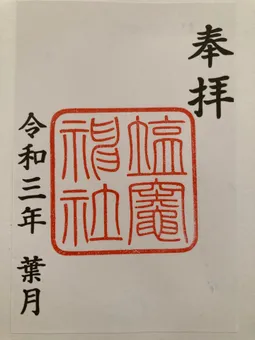 奉拝
塩竈
神社
令和三年 葉月